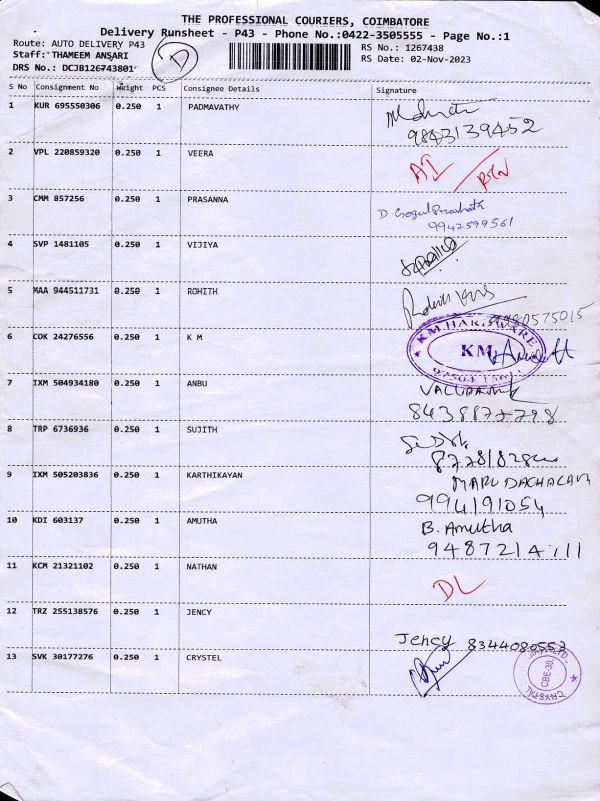 THE PROFESSIONAL COURIERS, COIMBATORE
Delivery Runsheet - P43 - Phone No.:0422-3505555 - Page No.:1
Route: AUTO DELIVERY P43 RS No.: 1267438
Staff: THAMEEM ANSARI D RS Date: 02-Nov-2023
DRS No.: DCJB126743801
S No Consignment No Weight PCS Consignee Details Signature
1 KUR 695550306 0.250 1 PADMAVATHY
9843139452
2 VPL 220859320 0.250 1 VEERA AI
3 CMM 857256 0.250 1 PRASANNA
9942599561
4 SVP 1481105 0.250 1 VIJIYA
5 MAA 944511731 0.250 1 ROHITH
KM HARDWARE
6 COK 24276556 0.250 1 K M KM
7 IXM 504934180 0.250 1 ANBU
8 TRP 6736936 0.250 1 SUJITH
9 IXM 505203836 0.250 1 KARTHIKAYAN MARUDACHALAM
994191054
10 KDI 603137 0.250 1 AMUTHA B. Amutha
11 KCM 21321102 0.250 1 NATHAN DL
12 TRZ 255138576 0.250 1 JENCY
Jency 8344080553
13 SVK 30177276 0.250 1 CRYSTEL
CBE-30
CRYSTAL